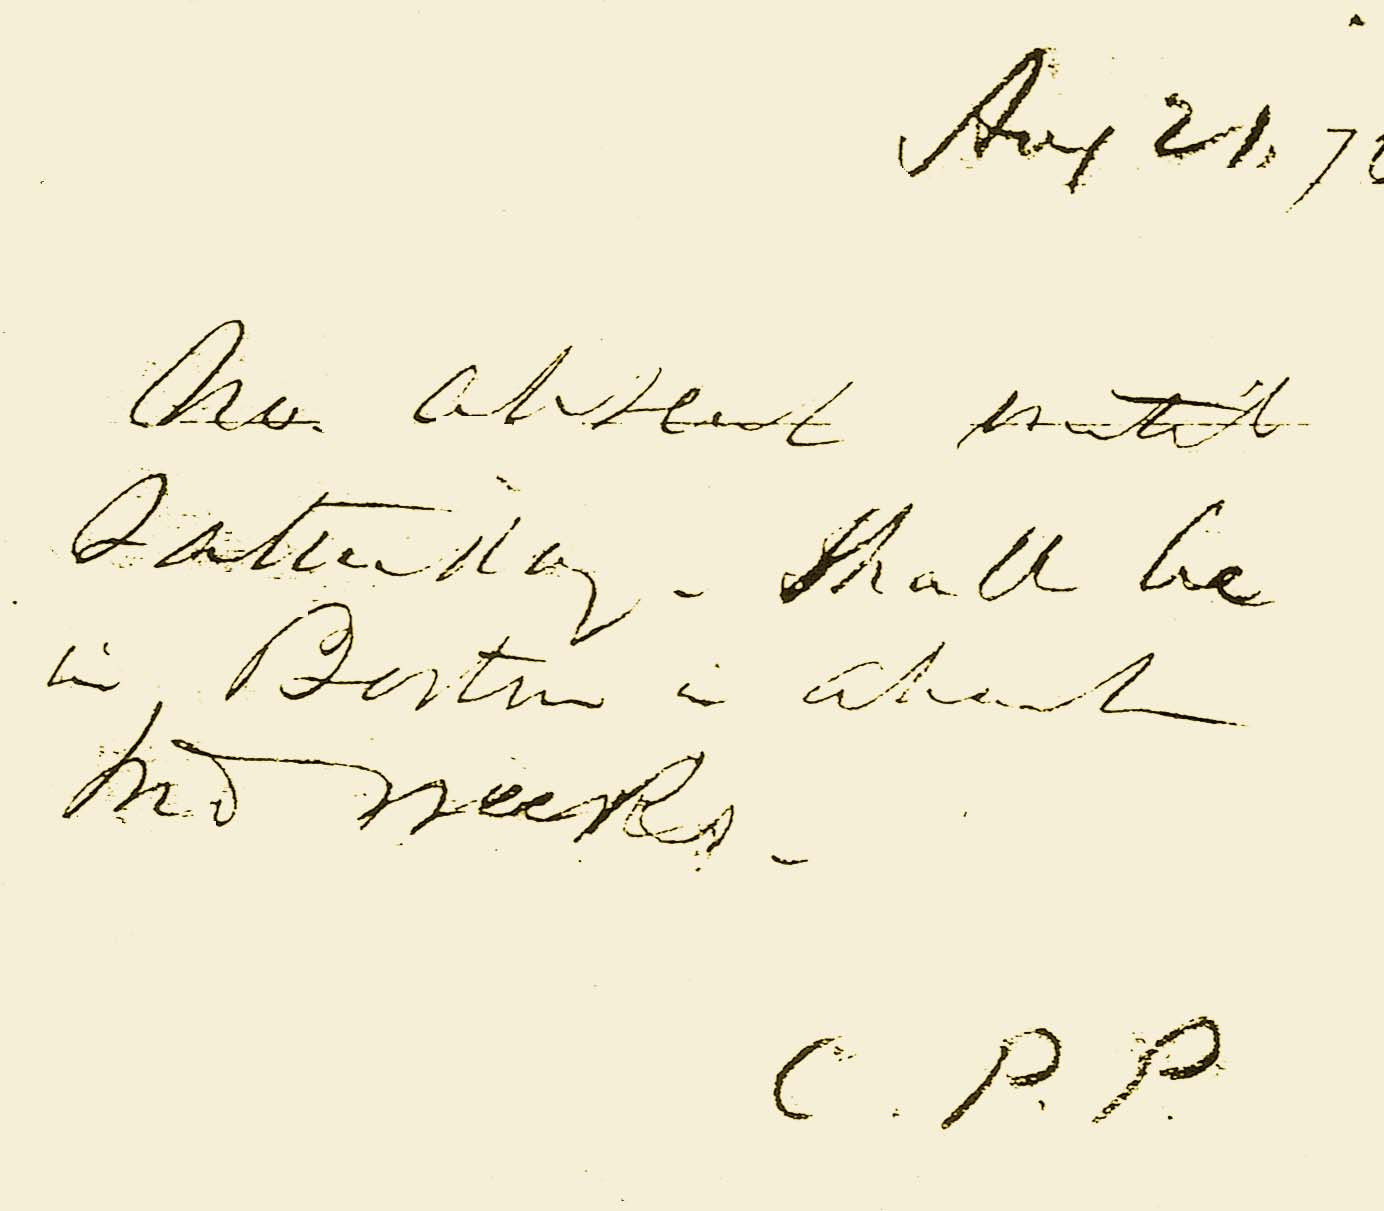 Aug 21, 7
absent until
Saturday - Shall be
in Boston in about
two weeks -
C. P. P.